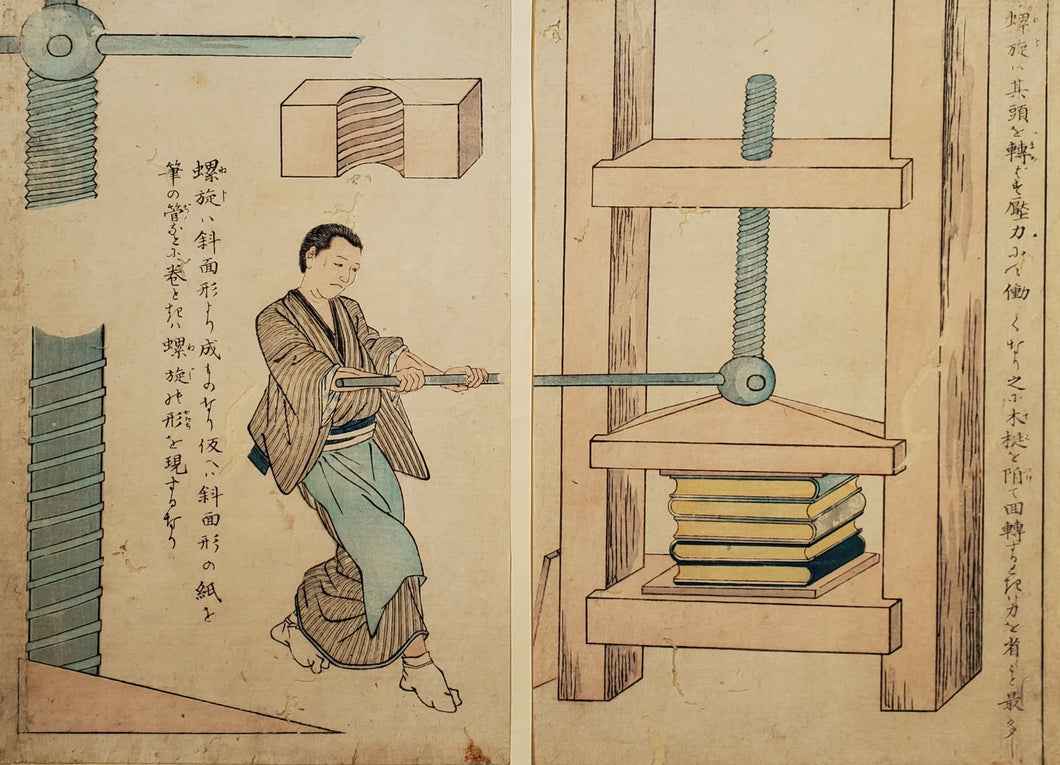 螺旋ハ其頭を轉 壓力にて働くなり之に木梃を附て回轉するときハ力を省くこと最多し
螺旋ハ斜面形より成ものなり仮へハ斜面形の紙を
筆の管などに卷ときハ螺旋の形を現すなり